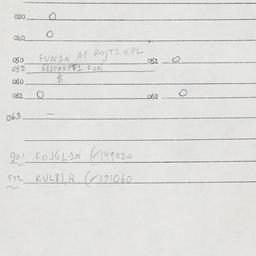 020 0
040 0
050 FUNIN AF ROJTIKPL 051 0
052 FUN
060 $
061 0 062 0
063 —
901 FOJGLAN (r149020
912 KULBI,R (r171060